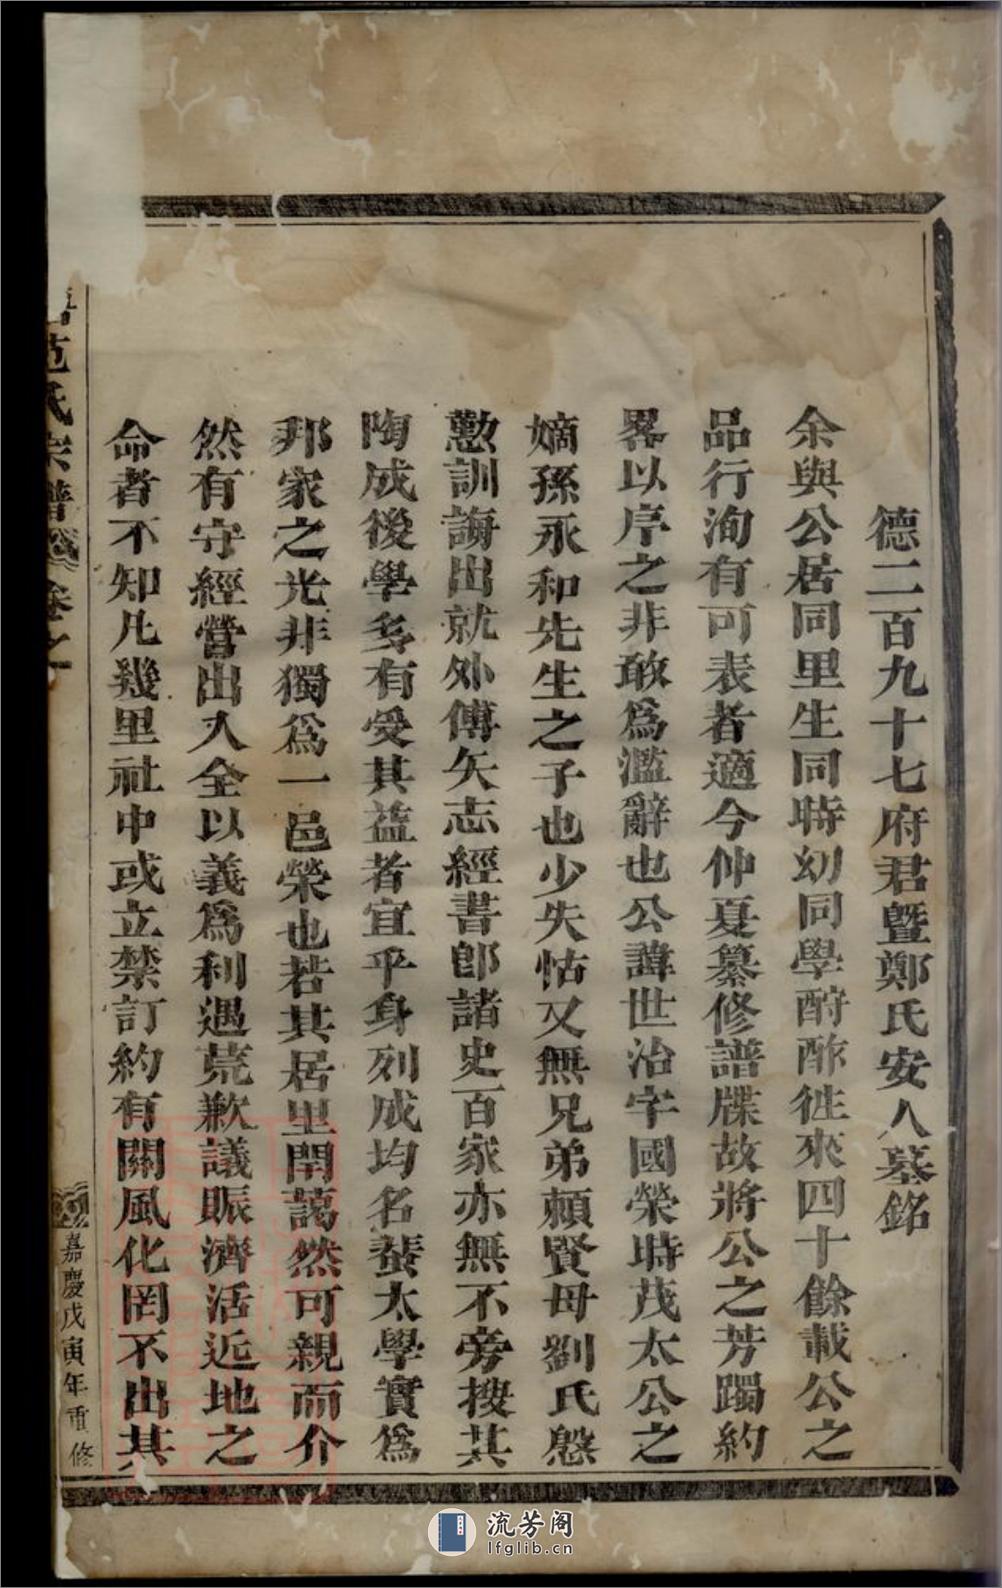 德二百九十七府君暨鄭氏安人墓銘
余與公居同里生同時幼同學酧酢徃來四十餘載公之
品行洵有可表者適今仲夏纂修譜牒故將公之芳躅約
畧以序之非敢為濫辭也公諱世治字國榮時茂太公之
嫡孫永和先生之子也少失怙又無兄弟賴賢母劉氏慇
懃訓誨出就外傅矢志經書郎諸史百家亦無不旁搜其
陶成後學多有受其益者宜乎身列成均名蜚太學實為
邦家之光非獨為一邑榮也若其居里閈藹然可親而介
然有守經營出入全以義為利遇荒歉議賑濟活近地之
命者不知凡幾里社中或立禁訂約有關風化罔不出其
范氏宗譜 卷之一
嘉慶戊寅年重修
流芳阁
lfglib.cn